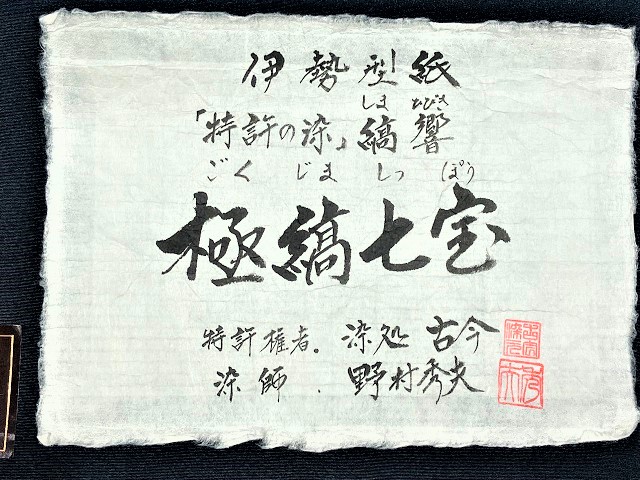 伊勢型紙
しま ひびき
「特許の染」縞響
ごくじましっぽう
極縞七宝
特許権者. 染処 古今
染師. 野村秀夫